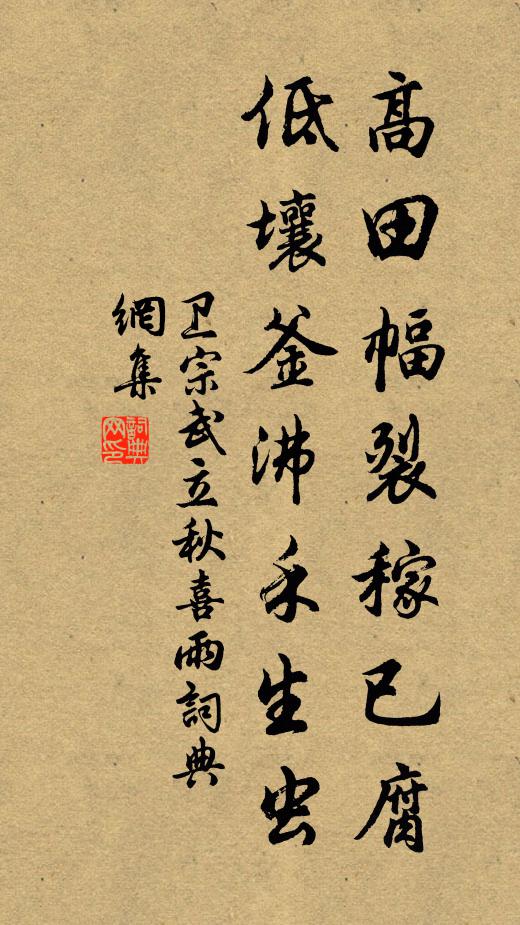 高田幅裂稼已腐
低壤釜沸禾生虫
卫宗武立秋喜雨詞典
網集
詞典網印